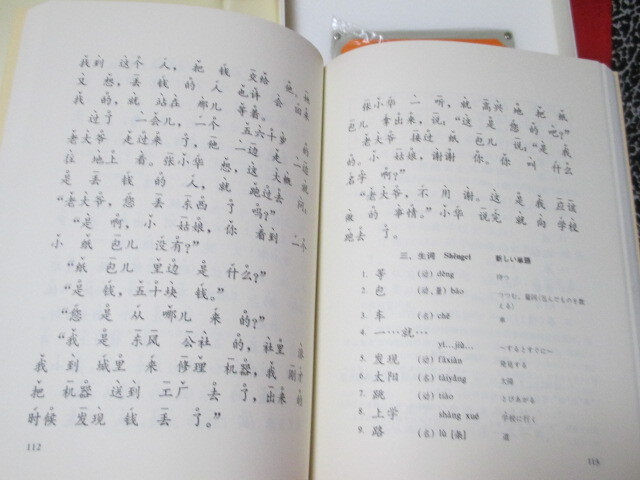 找到 这个 人，把 钱 交给 他。她
又 想，丢 钱 的 人 也许 会 回来
找 的，就 站在 那儿 等着。
过了 一会儿，一个 五六十岁 的
老大爷 走过来 了，他 一边 走 一边
往 地上 看。张小华 想，这 大概 就
是 丢 钱 的 人，就 跑过去 问：
“老大爷，您 丢 东西 了 吗？”
“是 啊，小 姑娘，你 看到 一个
小 纸 包儿 没有？”
“纸 包儿 里边 是 什么？”
“是 钱，五十块 钱。”
“您 是 从 哪儿 来 的？”
“我 是 东风 公社 的，社里 派
我 到 城里 来 修理 机器，我 刚才
把 机器 送到 工厂 去 了，出来 的
时候 发现 钱 丢 了。”
112
张小华 一 听，就 高兴 地 把 纸
包儿 拿出来，说：“这 是 您 的 吧？”
老大爷 接过 纸 包儿 说：“是 我
的。小 姑娘，谢谢 你。你 叫 什么
名字 啊？”
“老大爷，不用 谢。这 是 我 应该
做 的 事情。”小华 说完 就 向 学校
跑去 了。
三、生词 Shēngcí 新しい単語
1. 等 (动) děng 待つ
2. 包 (动、量) bāo つつむ、量詞（包んだものを数える）
3. 车 (名) chē 車
4. 一…就…
yī…jiù… ～するとすぐに～
5. 发现 (动) fāxiàn 発見する
6. 太阳 (名) tàiyáng 太陽
7. 跳 (动) tiào とびあがる
8. 上学 shàng xué 学校に行く
9. 路 (名) lù [条] 道
113